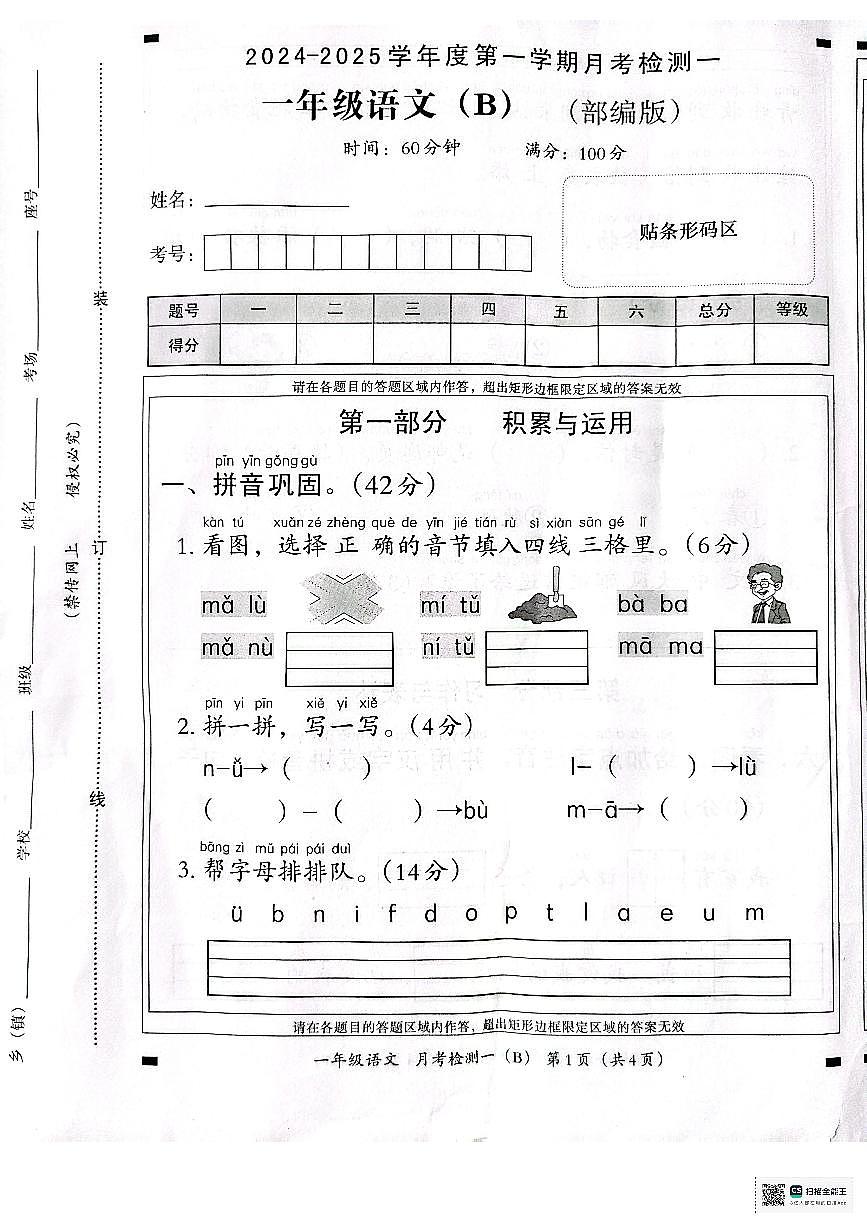 2024-2025学年度第一学期月考检测一
一年级语文（B）　（部编版）
时间：60分钟　满分：100分
姓名：
贴条形码区
考号：
题号 一 二 三 四 五 六 总分 等级
得分
请在各题目的答题区域内作答，超出矩形边框限定区域的答案无效
第一部分　积累与运用
pīn yīn gǒng gù
一、拼音巩固。（42分）
kàn tú xuǎn zé zhèng què de yīn jié tián rù sì xiàn sān gé lǐ
1. 看图，选择 正 确的音节填入四线三格里。（6分）
mǎ lù　mí tǔ　bà ba
mǎ nù　ní tǔ　mā ma
pīn yi pīn xiě yi xiě
2. 拼一拼，写一写。（4分）
n-ǚ→（　）　l-（　）→lù
（　）-（　）→bù　m-ā→（　）
bāng zì mǔ pái pái duì
3. 帮字母排排队。（14分）
ü b n i f d o p t l a e u m
请在各题目的答题区域内作答，超出矩形边框限定区域的答案无效
一年级语文 月考检测一（B） 第1页（共4页）
座号
考场
姓名
班级
学校
乡（镇）
（禁传网上　侵权必究）
装
订
线
CS 扫描全能王